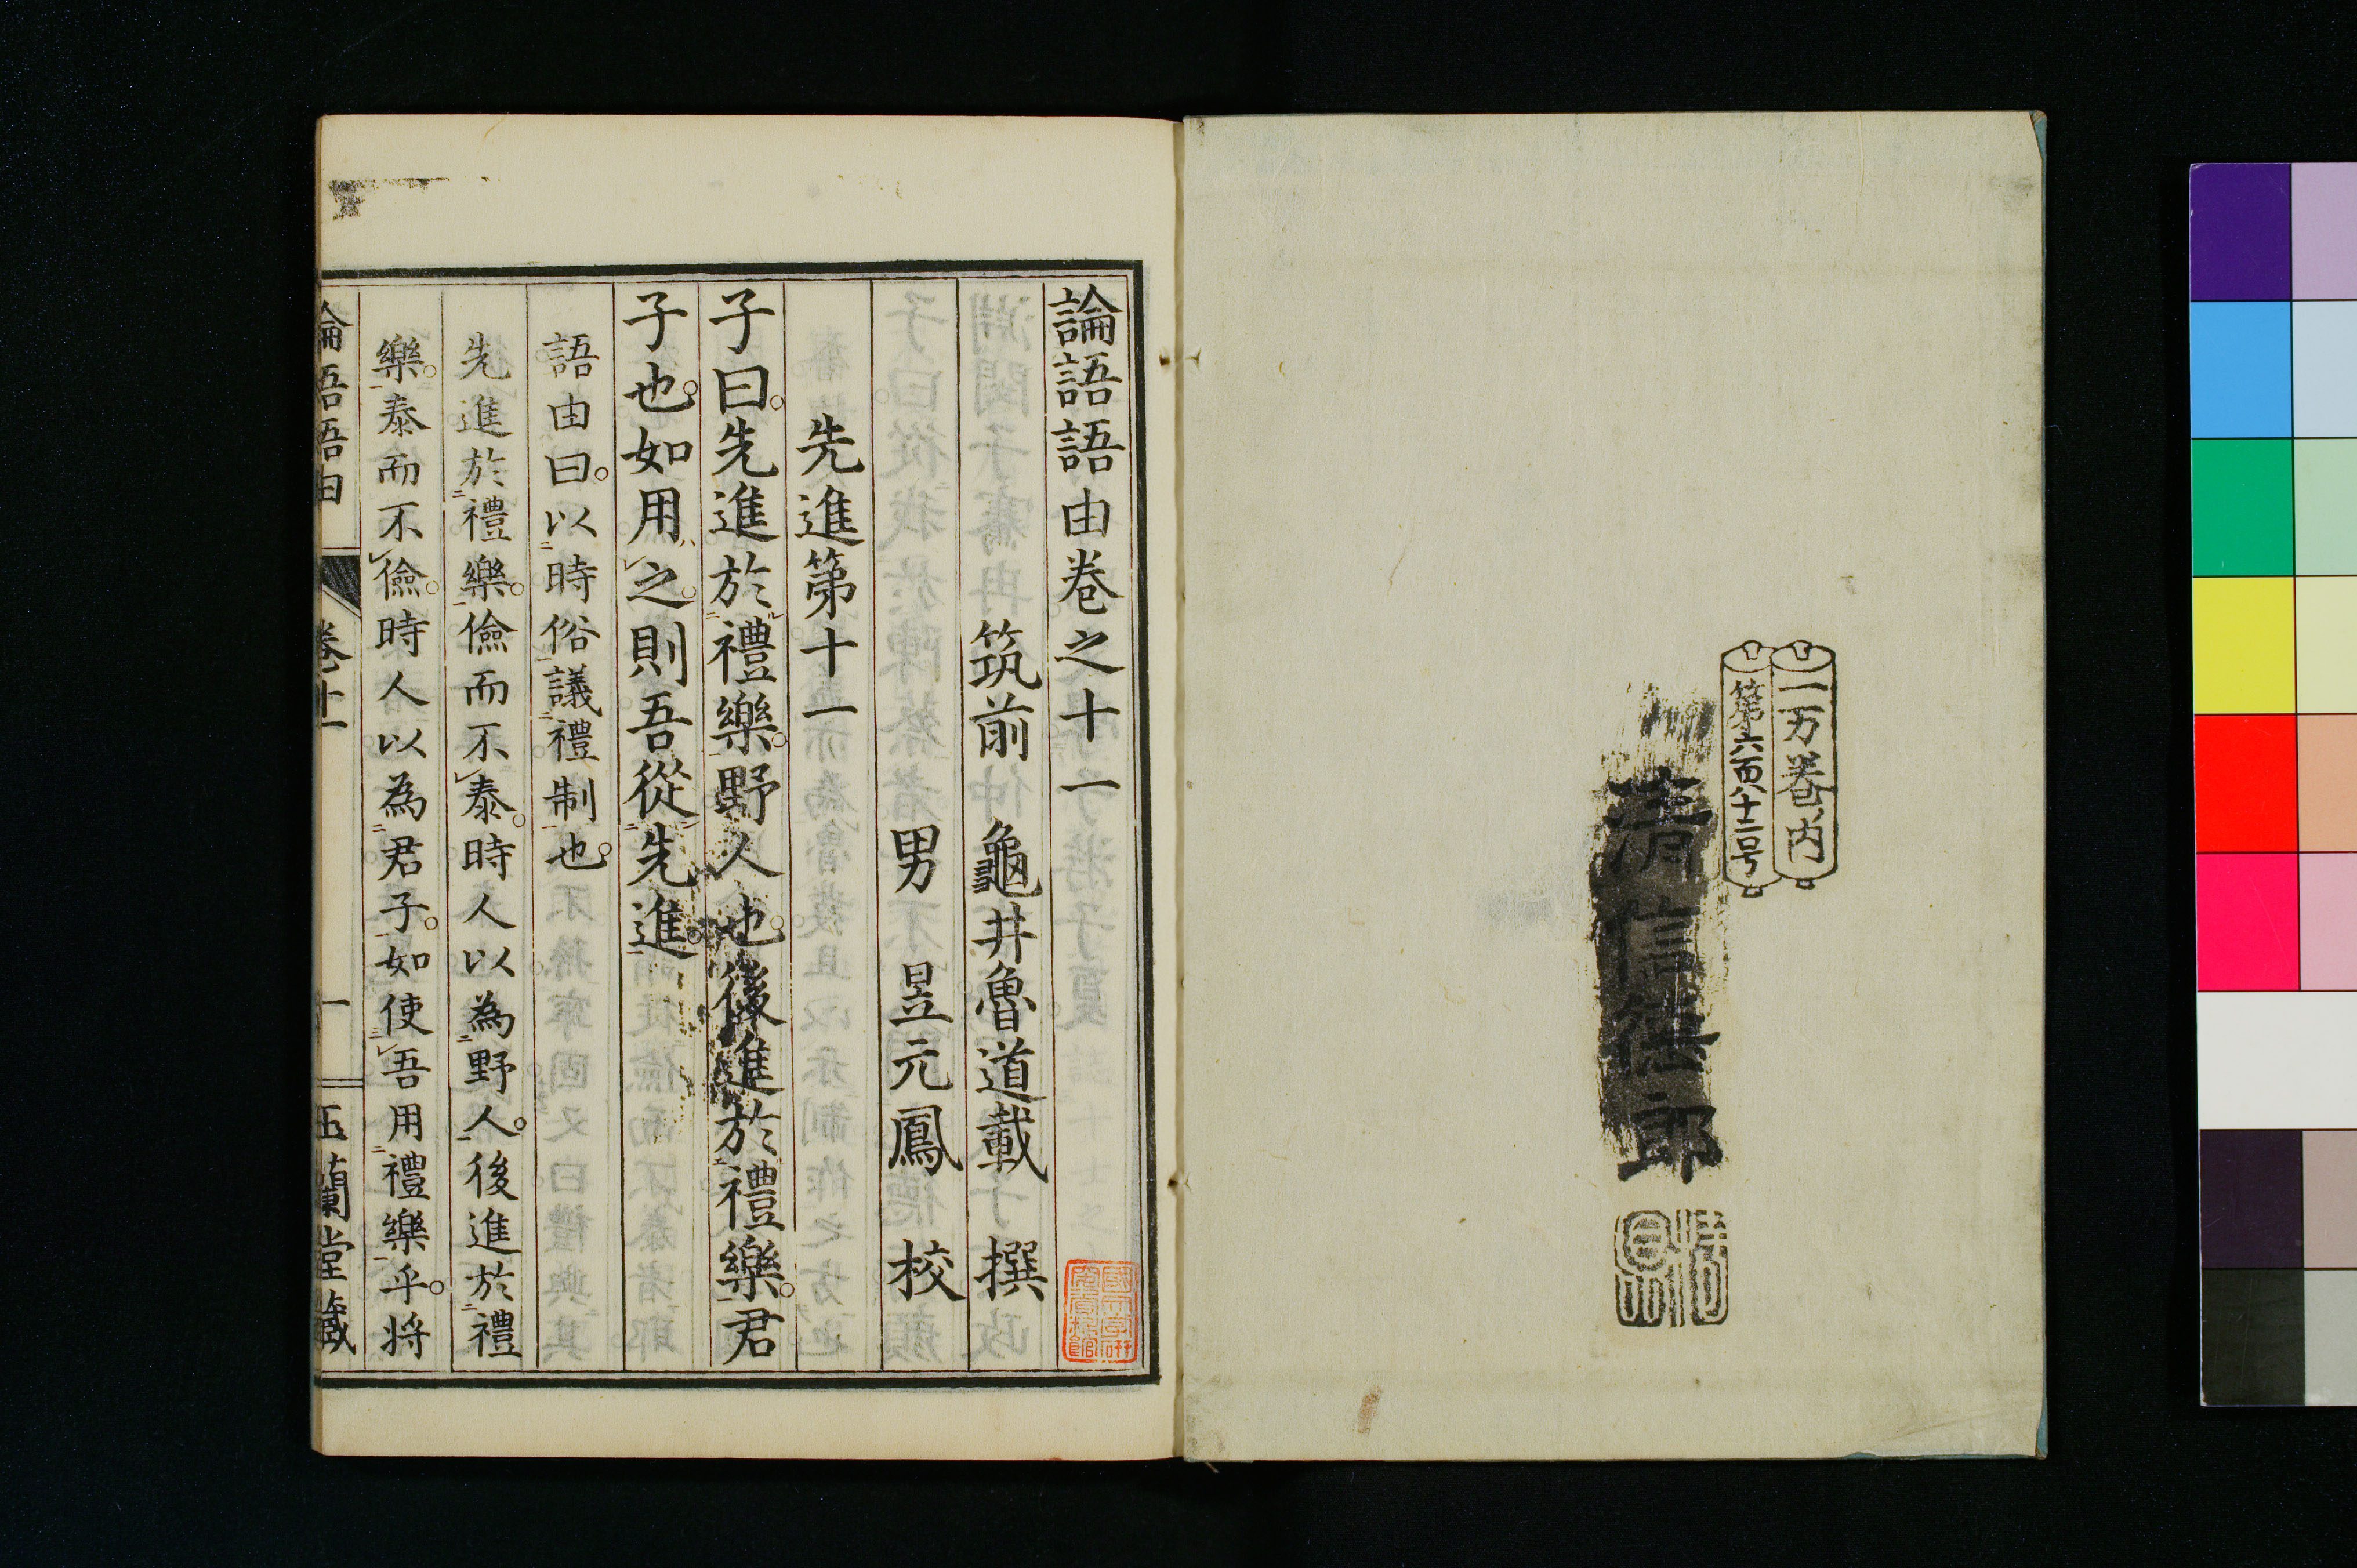 一万巻内
第六百八十二号
清信德郎
論語語由巻之十一
筑前 龜井魯道載 撰
男 昱元鳳 校
先進第十一
子曰。先進於禮樂。野人也。後進於禮樂。君
子也。如用之。則吾從先進。
語由曰。以時俗議禮制也。
先進於禮樂。儉而不泰。時人以為野人。後進於禮
樂。泰而不儉。時人以為君子。如使吾用禮樂乎。将
論語語由 巻十一 一 玉蘭堂藏